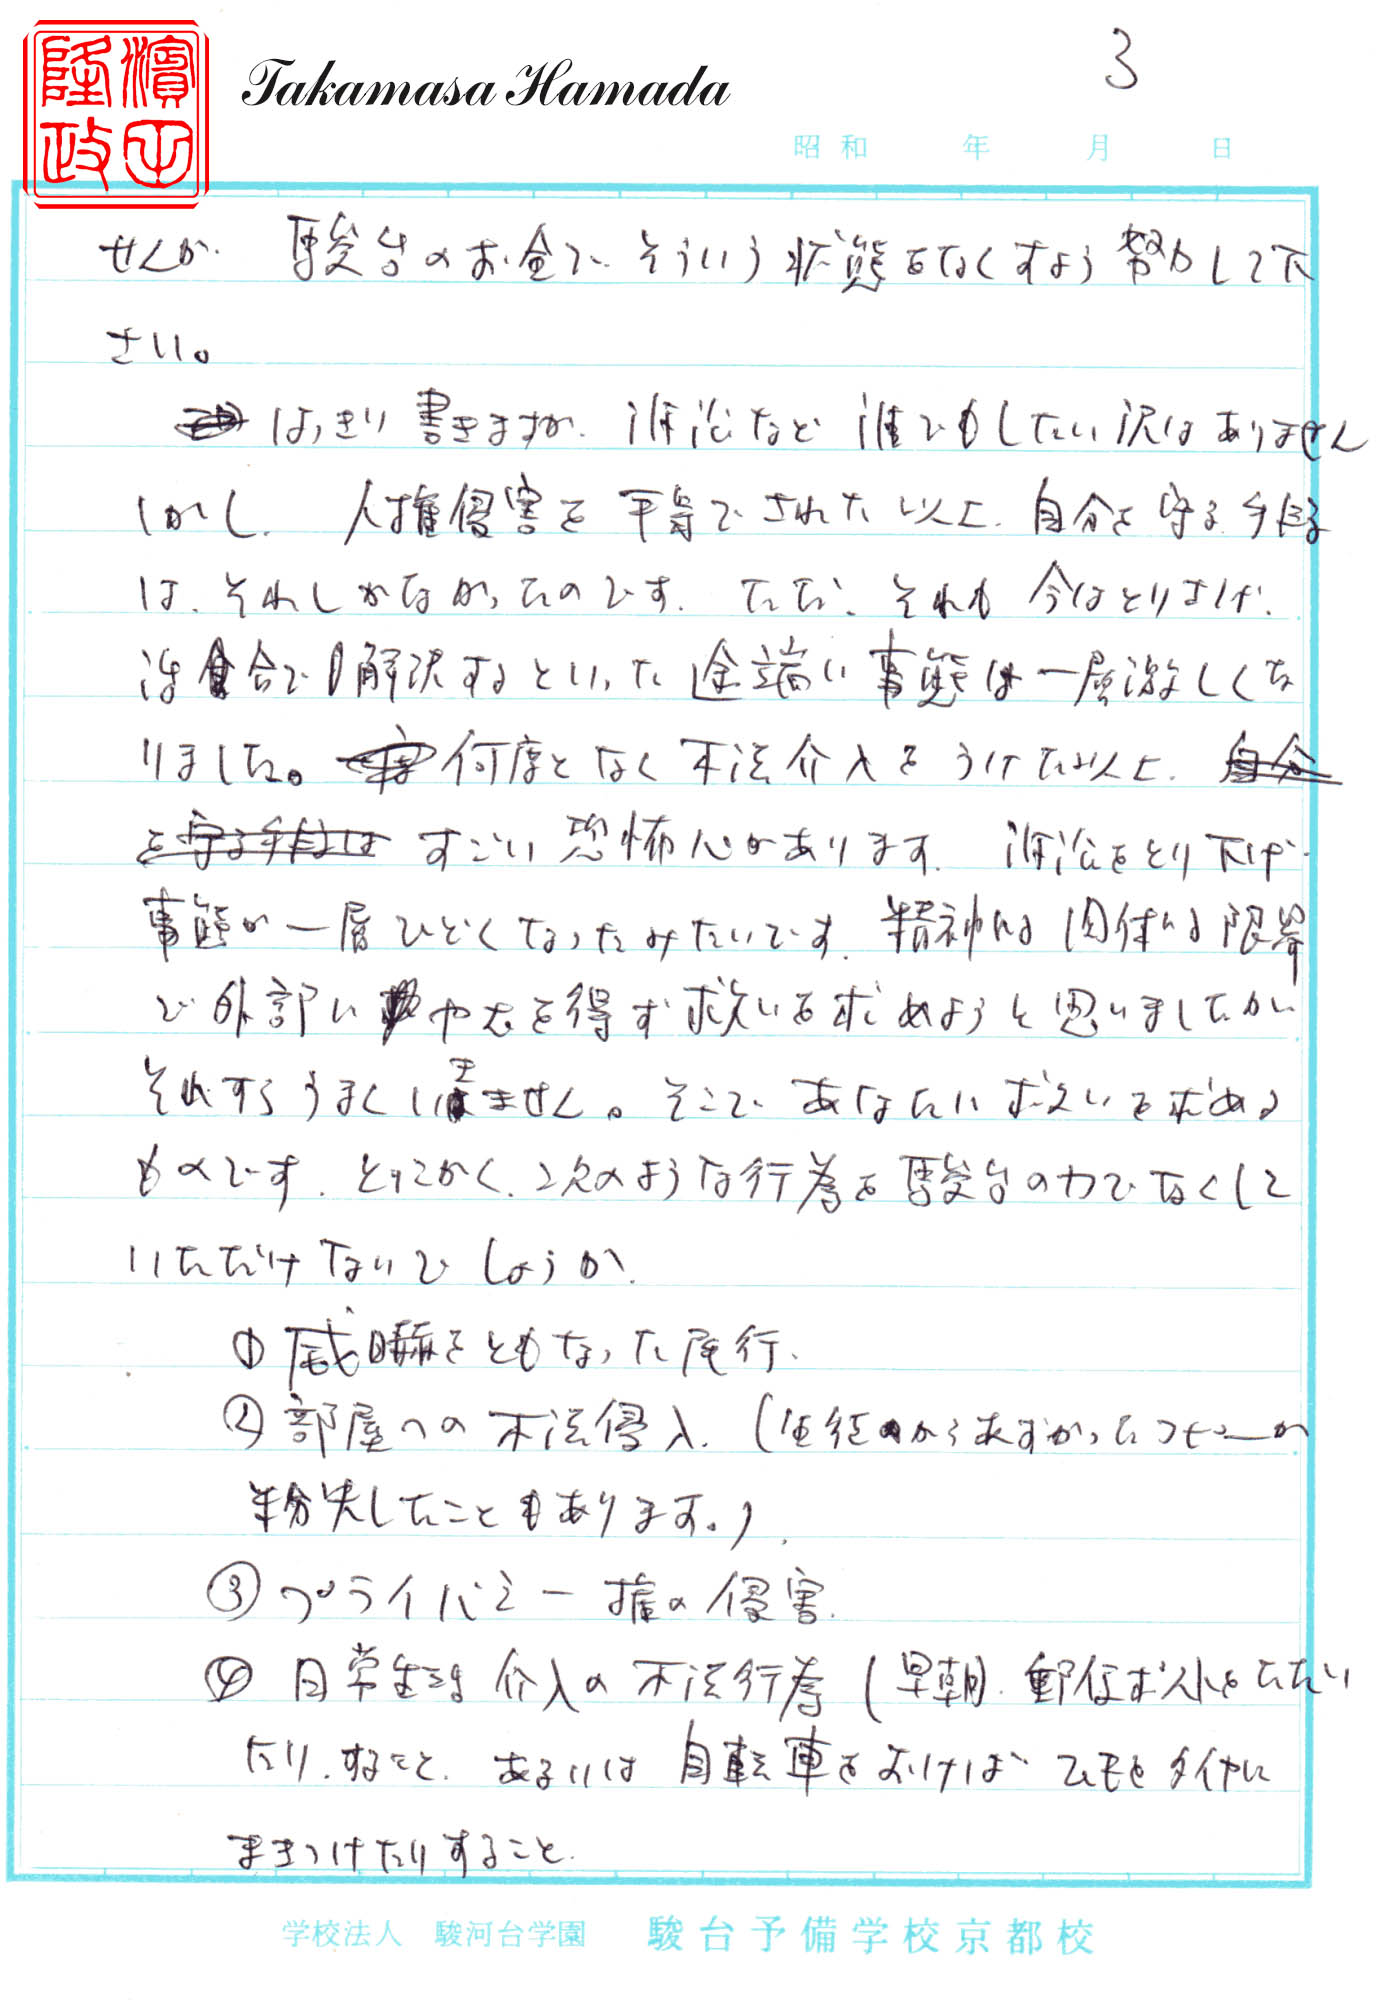 隆政 濱田
Takamasa Hamada
3
昭和 年 月 日
せんか. 駿台のお金で、そういう状態をなくすよう努力して下
さい。
はっきり書きますが、訴訟など誰でもしたい訳はありません
しかし、人権侵害を平等でされた以上、自分を守る手段
は、それしかなかったのです。ただ、それも今はとりさげ、
話合で解決するといった途端に事態は一層激しくな
りました。何度となく不法介入をうけた以上、自分
を守る手段は すごい恐怖心があります。 訴訟をとり下げ
事態が一層ひどくなったみたいです。精神的肉体的限界
で外部にやむを得ず救いを求めようと思いましたが
それすらうまくいきません。そこであなたに救いを求める
ものです。とにかく、次のような行為を駿台の力でなくして
いただけないでしょうか.
① 威嚇をともなった尾行.
② 部屋への不法侵入.(生徒からあずかったコピーが
紛失したこともあります。).
③ プライバシー権の侵害.
④ 日常生活介入の不法行為(早朝、郵便ポストをたたい
たり、すること、あるいは自転車をおけばひもをタイヤに
まきつけたりすること.
学校法人 駿河台学園 駿台予備学校京都校